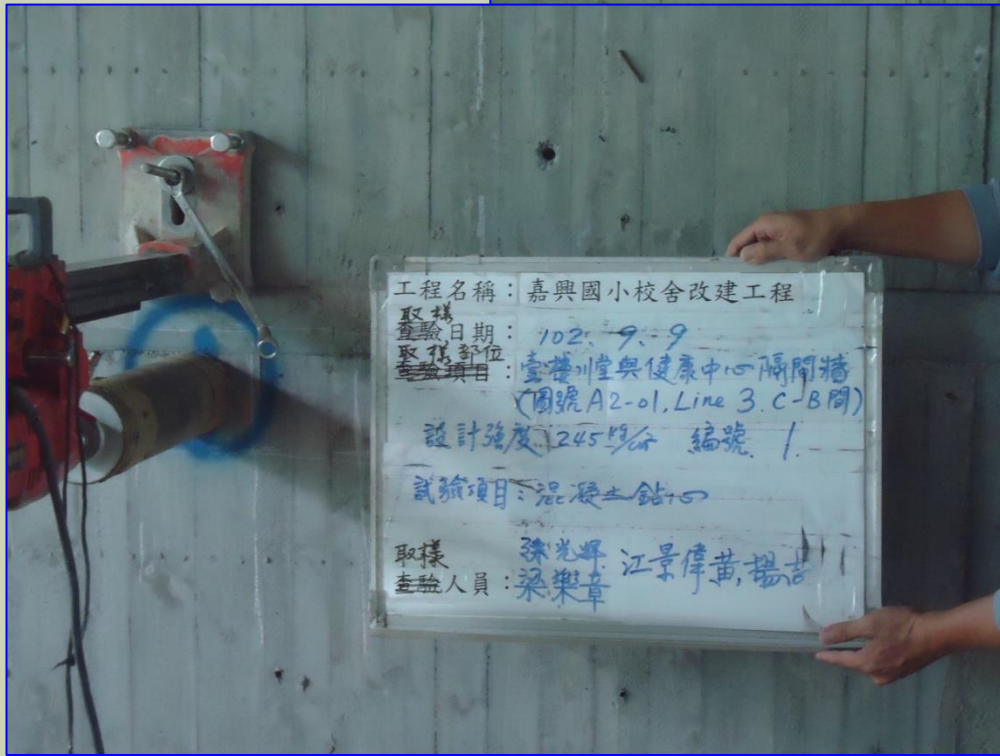 工程名稱：嘉興國小校舍改建工程
取樣
查驗日期：102. 9. 9
取樣部位
查驗項目：壹樓川堂與健康中心隔間牆
(圖號A2-01, Line 3. C-B間)
設計強度：245 kg/cm² 編號. 1.
試驗項目：混凝土鑽心
取樣 光輝 江景偉 黃, 楊吉
查驗人員：梁樂章